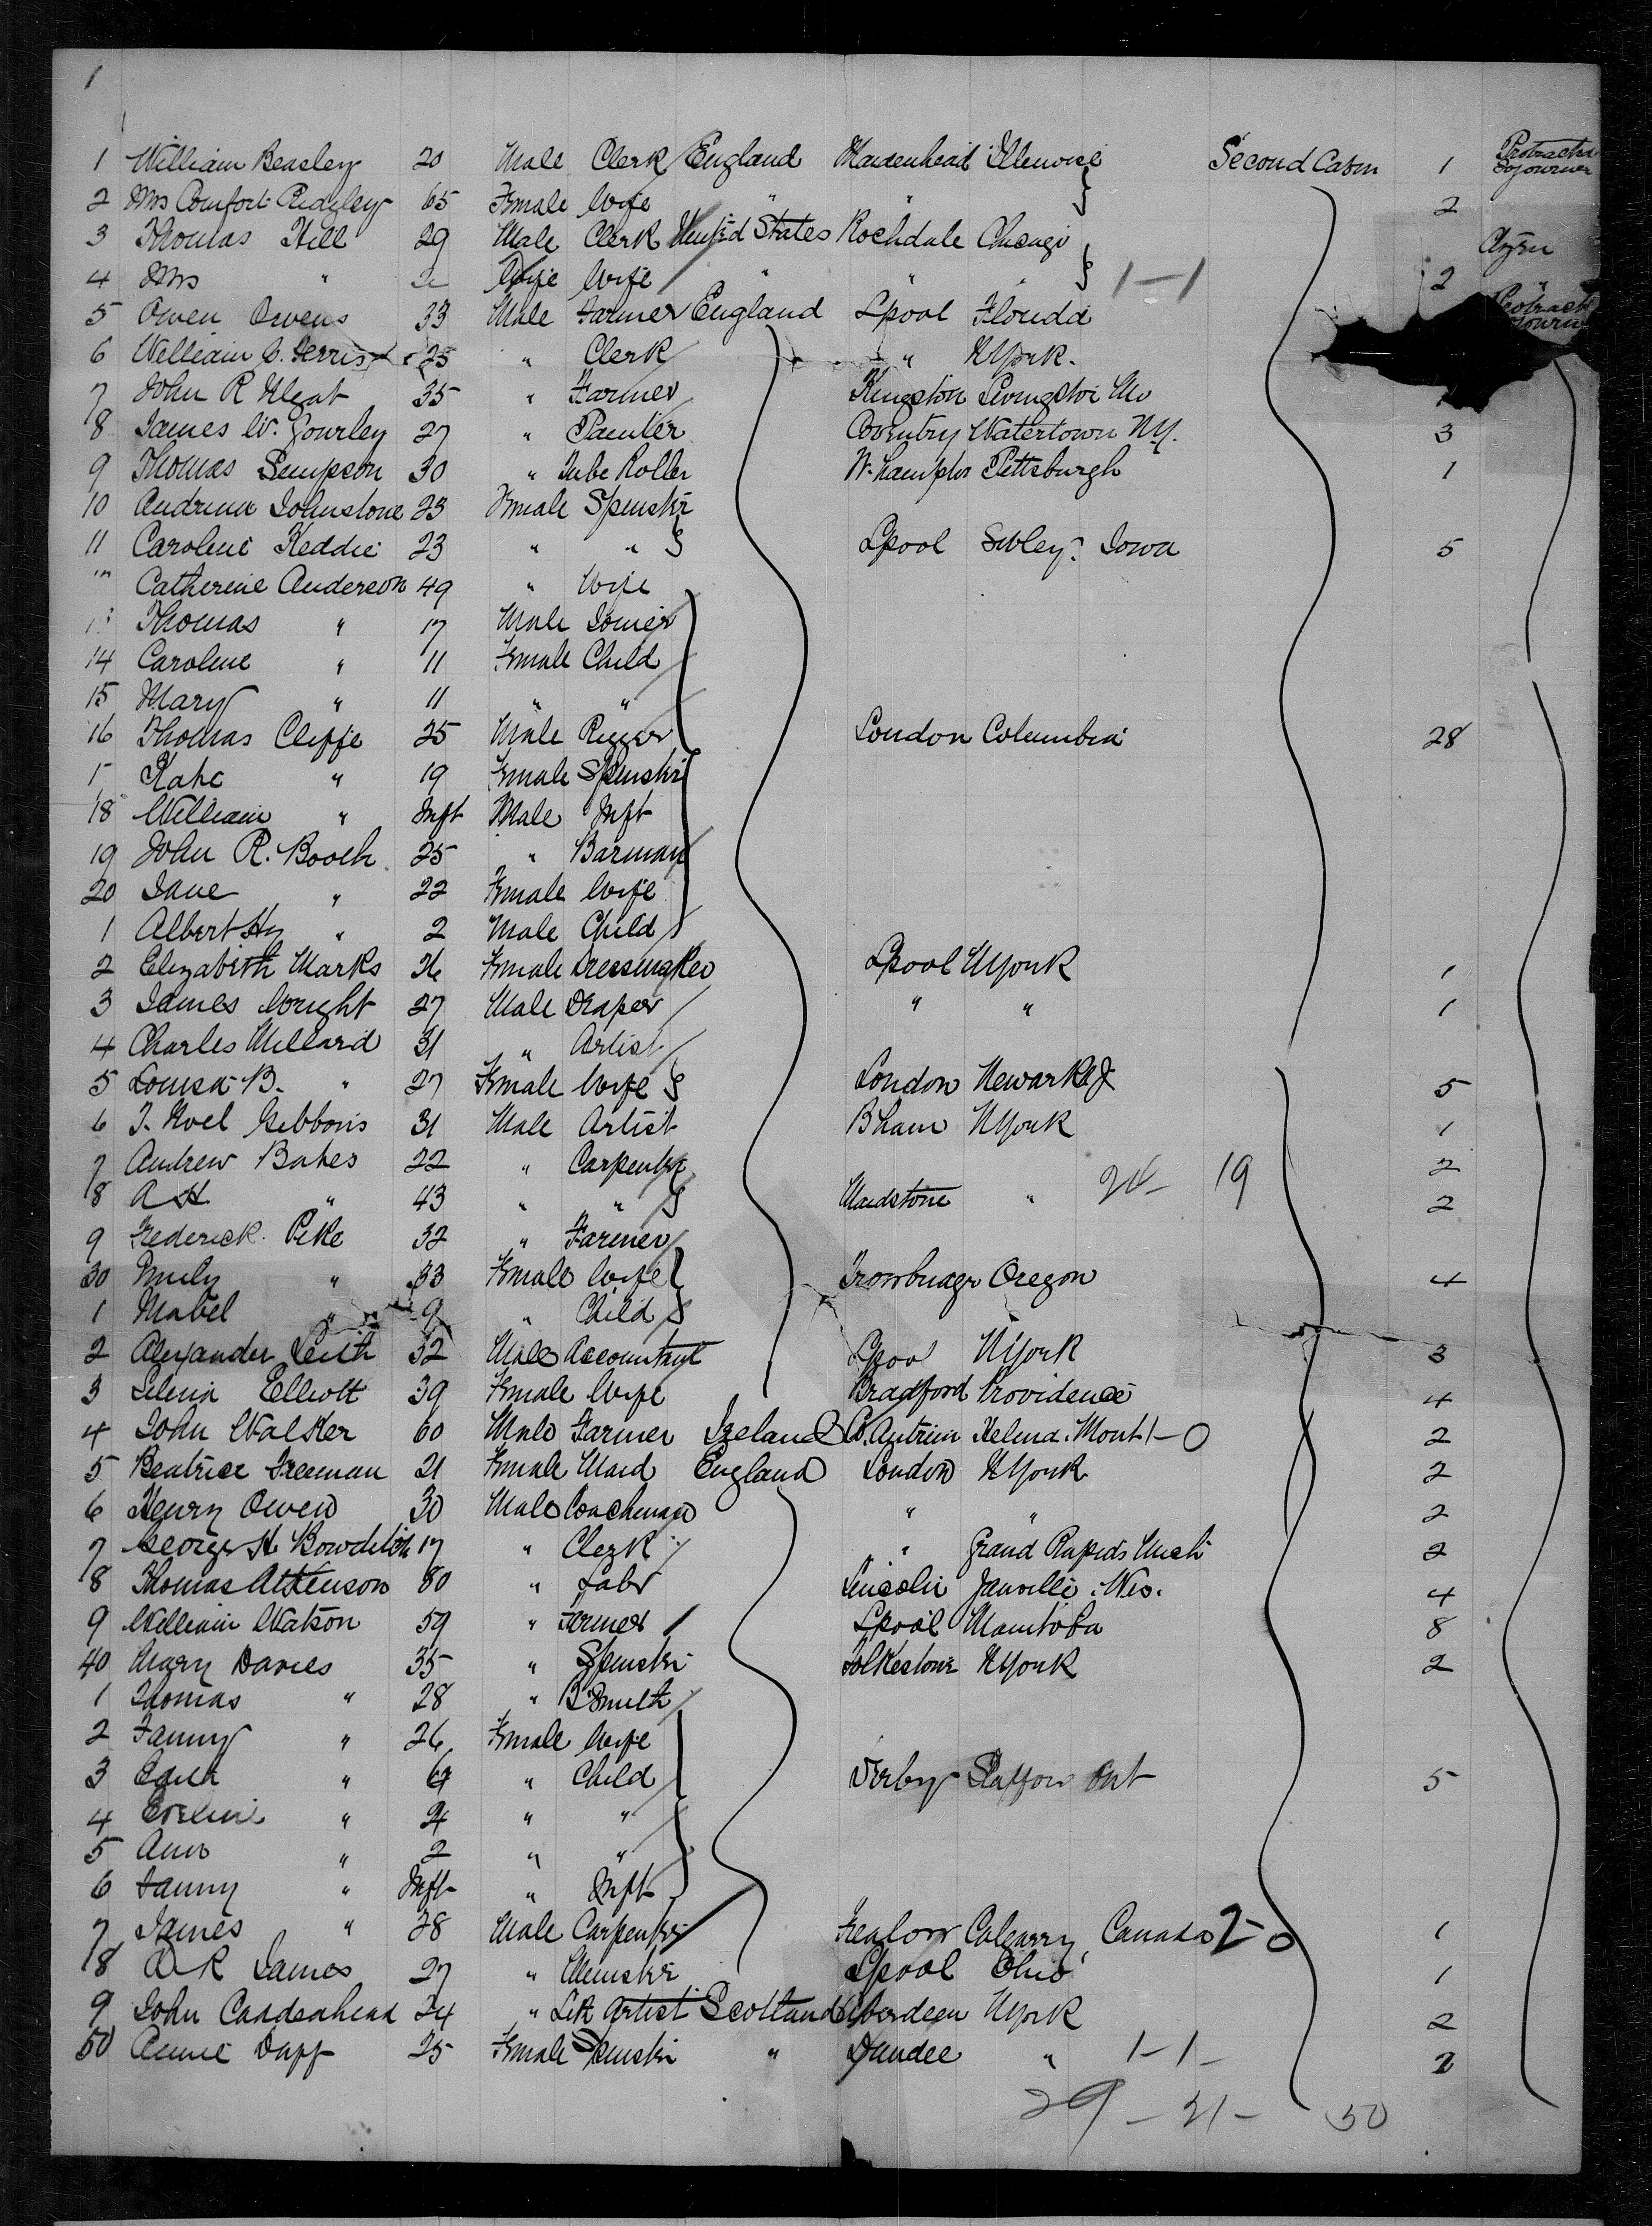 1
1 William Beasley 20 Male Clerk England Maidenhead Illinois Second Cabin 1 Protracted Sojourner
2 Mrs Comfort Ridgley 65 Female Wife " " 2
3 Thomas Hill 29 Male Clerk United States Rochdale Chicago
4 Mrs " Wife Wife " " 1-1 2 "
5 Owen Owens 33 Male Farmer England Lpool Florida
6 William C. 25 " Clerk " NYork.
7 John R 35 " Farmer Kingston
8 James W. Gourley 27 " Painter Coventry Watertown NY. 3
9 Thomas Simpson 30 " Tube Roller W.hampton Pittsburgh 1
10 Andrina Johnstone 23 Female Spinster
11 Caroline Keddie 23 " " Lpool Sibley Iowa 5
Catherine Anderson 49 " Wife
Thomas " 17 Male Joiner
14 Caroline " 11 Female Child
15 Mary " 11 " "
16 Thomas Cliffe 25 Male London Columbia 28
1 Kate " 19 Female Spinster
18 William " Inft Male Inft
19 John R. Booth 25 " Barman
20 Jane " 22 Female Wife
1 Albert Hy " 2 Male Child
2 Elizabeth Marks 26 Female Lpool NYork 1
3 James Wright 27 Male Draper " " 1
4 Charles Millard 31 " Artist
5 Louisa B. " 27 Female Wife London Newark NJ 5
6 J. Noel Gibbons 31 Male Artist Bham NYork 1
7 Andrew Bates 22 " Carpenter 2
8 A H. " 43 " " Maidstone " 24- 19 2
9 Frederick Pike 32 " Farmer
30 Emily " 33 Female Wife Trowbridge Oregon 4
1 Mabel " 9 " Child
2 Alexander Leith 32 Male Accountant Lpool NYork 3
3 Selina Elliott 39 Female Wife Bradford Providence 4
4 John Walker 60 Male Farmer Ireland Co. Antrim Helena. Mont 1-0 2
5 Beatrice Freeman 21 Female Maid England London NYork 2
6 Henry Owen 30 Male Coachman " " 2
7 George H Bowditch 17 " Clerk " Grand Rapids Mich 2
8 Thomas Atkinson 80 " Labr Lincoln Janville. Wis. 4
9 William Watson 59 " Farmer Lpool Manitoba 8
40 Mary Davies 35 " Spinster Folkestone NYork 2
1 Thomas " 28 " B Smith
2 Fanny " 26 Female Wife
3 Edith " 6 " Child Derby Ont 5
4 " 4 " "
5 Ann " 2 " "
6 Fanny " Inft " Inft
7 James " 28 Male Carpenter Calgarry, Canada 2-0 1
8 D R James 27 " Lpool Ohio 1
9 John 24 " Lith Artist Scotland Aberdeen NYork 2
50 Annie 25 Female Spinster " Dundee " 1-1- 2
29 - 21- 50